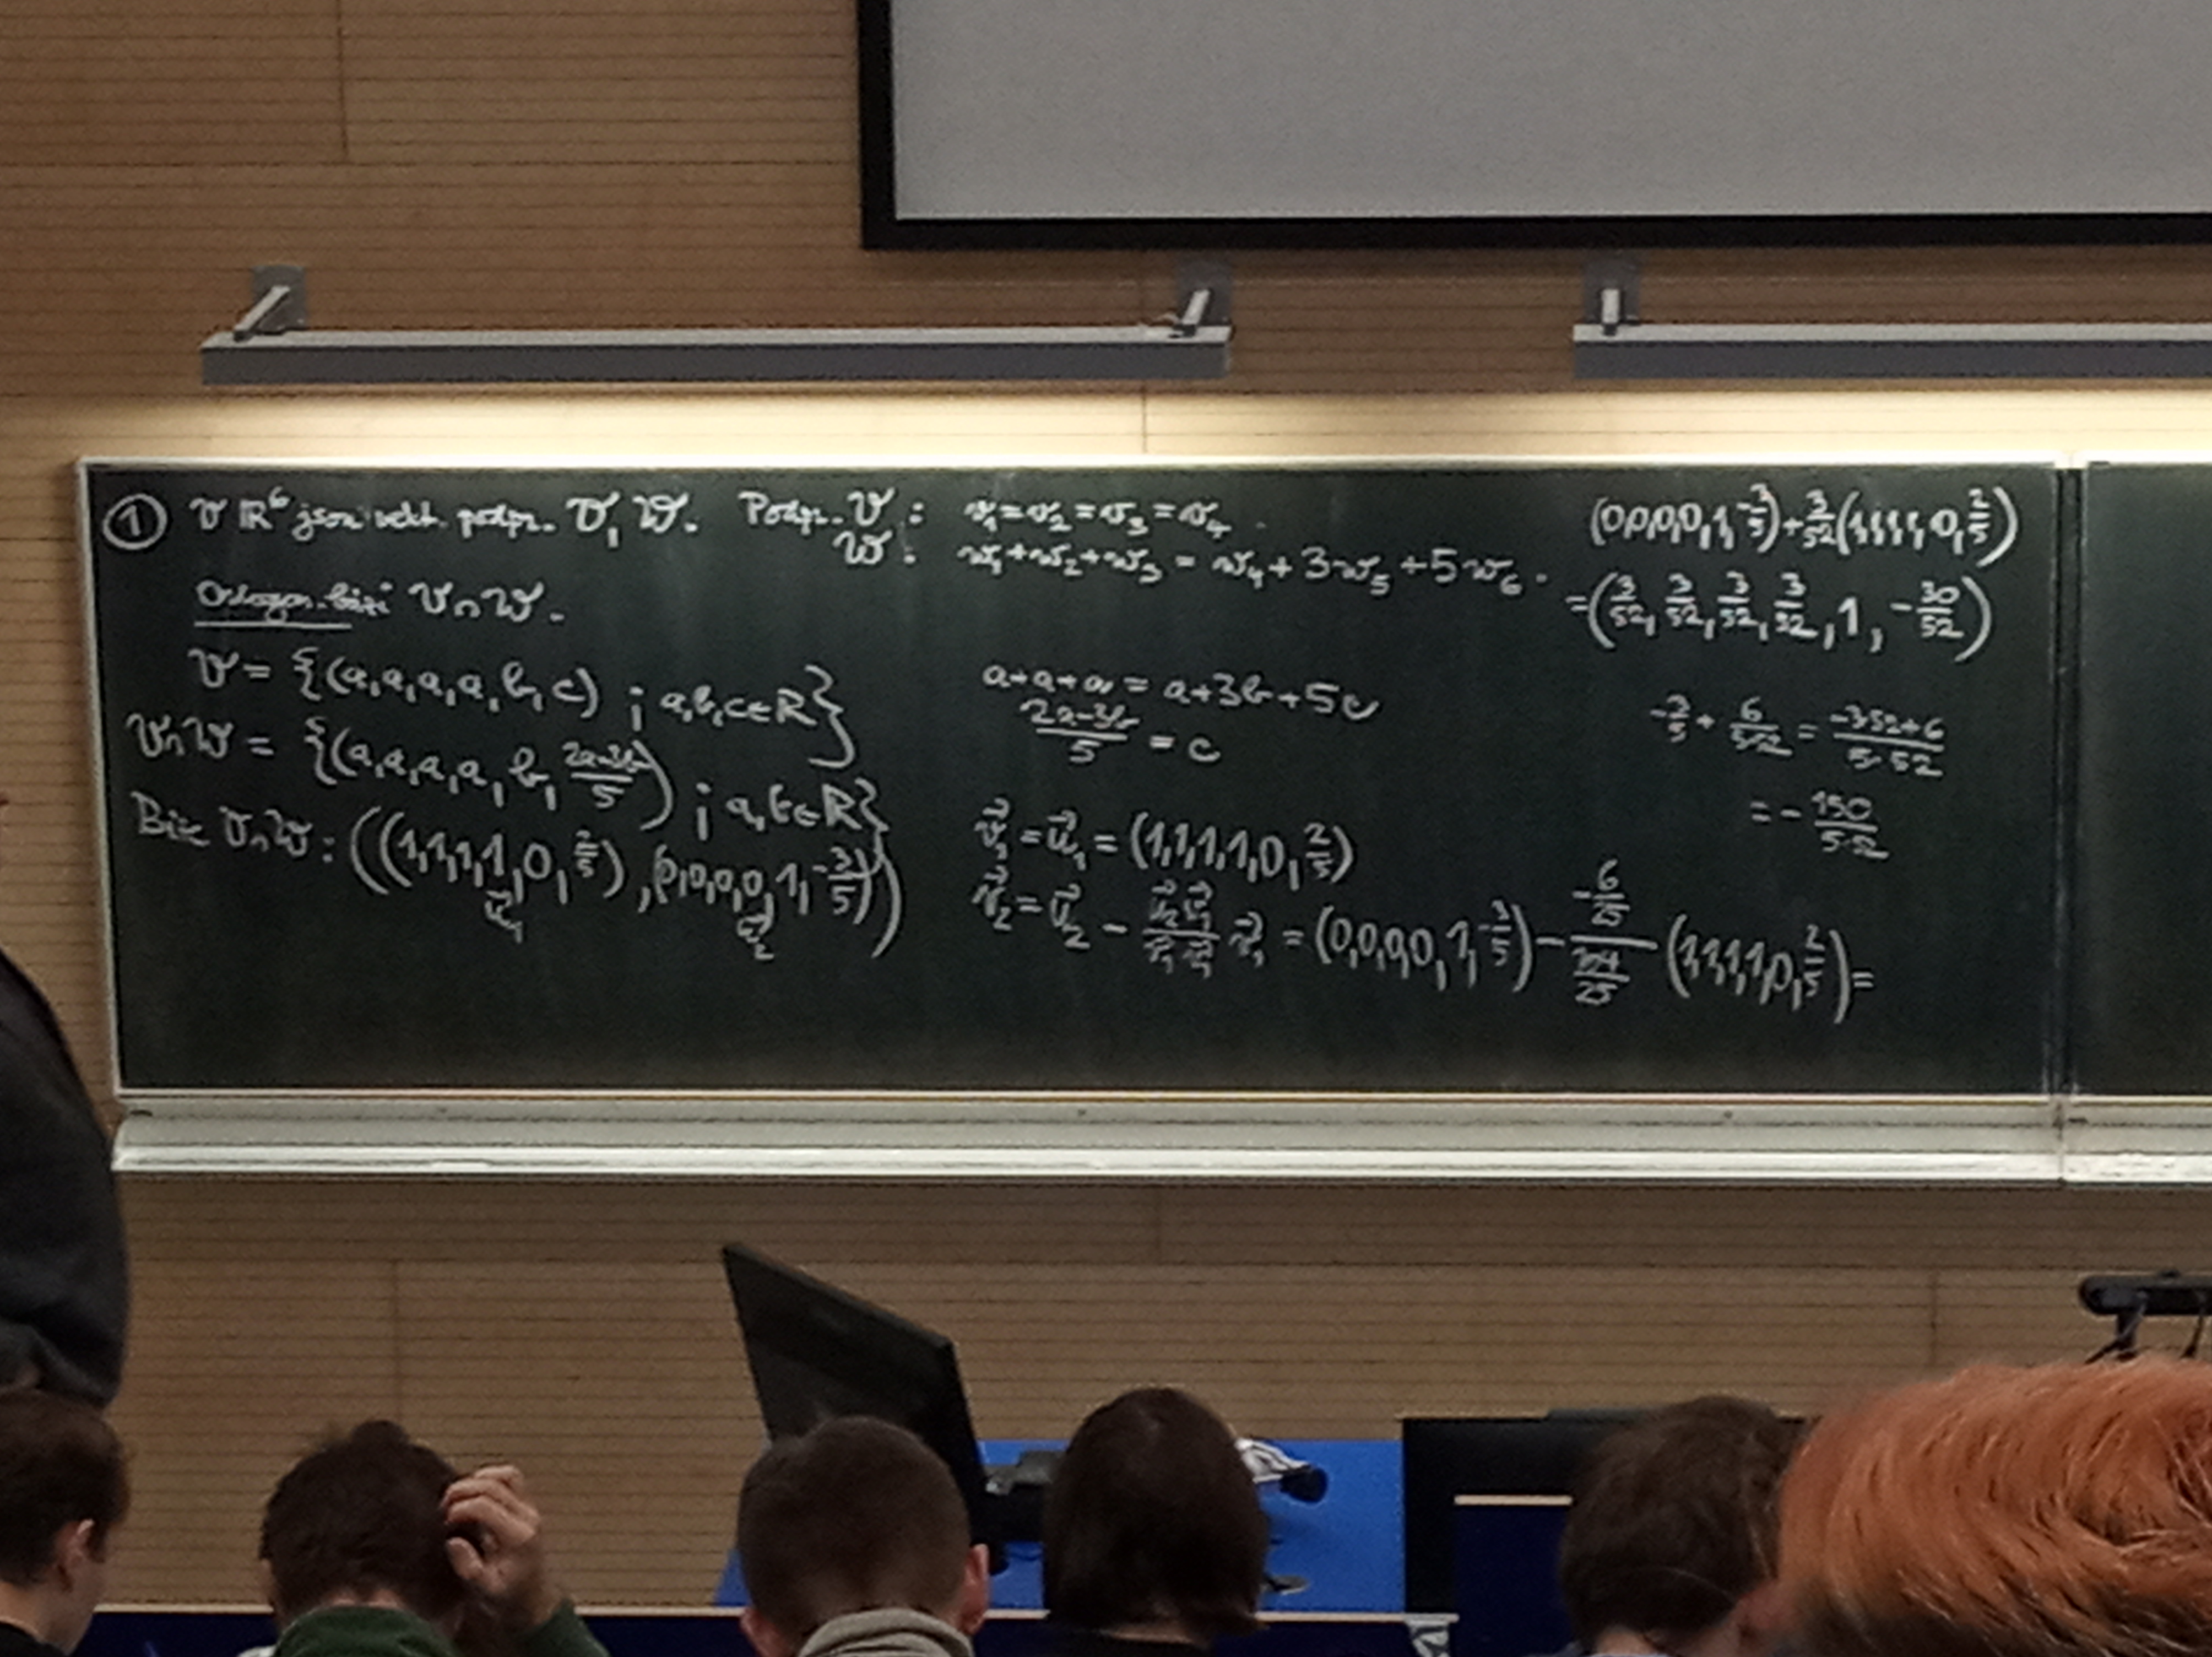 ① V ℝ⁶ jsou vekt. podpr. V, W. Podpr. V: v₁=v₂=v₃=v₄.
W: w₁+w₂+w₃ = w₄+3w₅+5w₆.
Ortogon. bázi V∩W.
V = {(a,a,a,a,b,c) ; a,b,c∈ℝ}
V∩W = {(a,a,a,a,b,(2a-3b)/5) ; a,b∈ℝ}
Báze V∩W: ((1,1,1,1,0,2/5), (0,0,0,0,1,-3/5))
u⃗₁ u⃗₂
a+a+a = a+3b+5c
(2a-3b)/5 = c
v⃗₁ = u⃗₁ = (1,1,1,1,0,2/5)
v⃗₂ = u⃗₂ - (u⃗₂v⃗₁)/(v⃗₁v⃗₁) v⃗₁ = (0,0,0,0,1,-3/5) - (-6/25)/(104/25) (1,1,1,1,0,2/5) =
(0,0,0,0,1,-3/5)+3/52(1,1,1,1,0,2/5)
=(3/52, 3/52, 3/52, 3/52, 1, -30/52)
-3/5 + 6/(5·52) = (-3·52+6)/(5·52)
= - 150/(5·52)